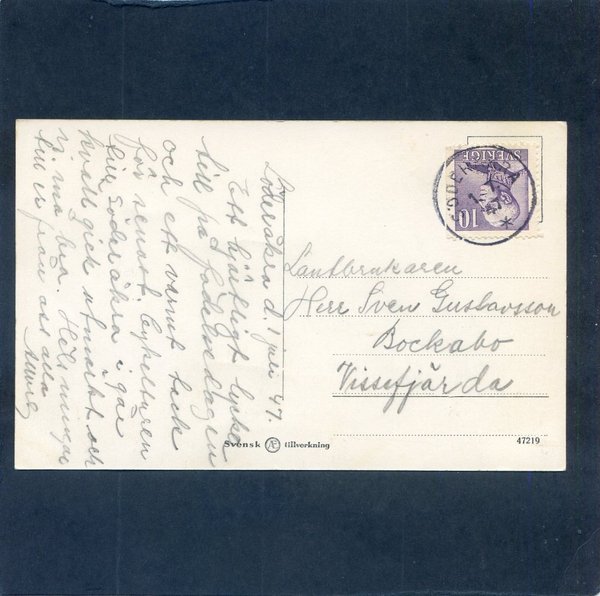 Söderåkra d. 1 juli 47.
Ett hjärtligt lycka
till på födelsedagen
och ett varmt tack
för senast. Cykelturen
till Söderåkra i går
kväll gick utmärkt och
vi må bra. Hälsningar
till er från oss alla
SVERIGE
10
SÖDERÅKRA
1.7.
47
*
Lantbrukaren
Herr Sven Gustavsson
Bockabo
Vissefjärda
Svensk Æ tillverkning
47219